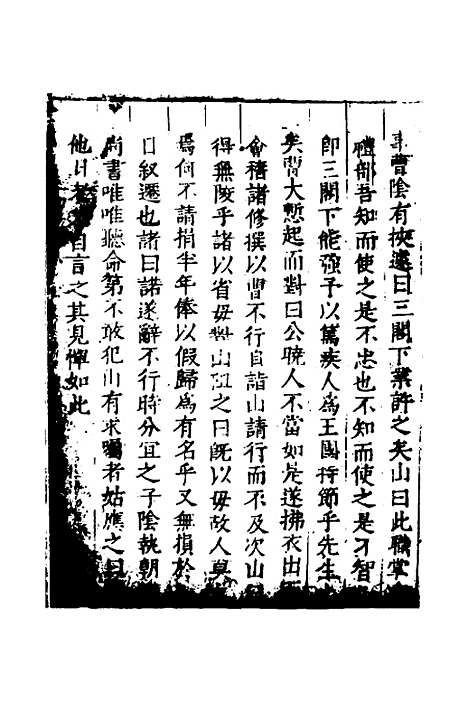 曹陰有挾遽曰三閣下業許之矣山曰此職掌
禮部吾知而使之是不忠也不知而使之是不智
即三閣下能強予以篤疾人為王國持節乎先生
矣曹大慙起而對曰公曉人不當如是遂拂衣出
會稽諸修撰以曹不行自詣山請行而不及次山
得無陵乎諸以省毋對山阻之曰既以毋故人
爲何不請捐半年俸以假歸為有名乎又無損於
日叙遷也諸曰諾遂辭不行時分宜之子陰執朝
尚書唯唯聽命第不敢犯山有求囑者姑應之曰
他日 自言之其見憚如此